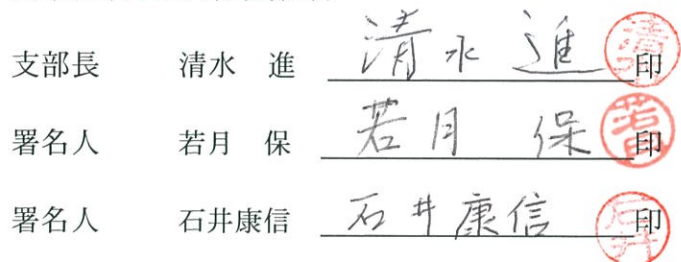 支部長 清水 進 清水 進 印 清水
署名人 若月 保 若月 保 印 若月
署名人 石井康信 石井康信 印 石井